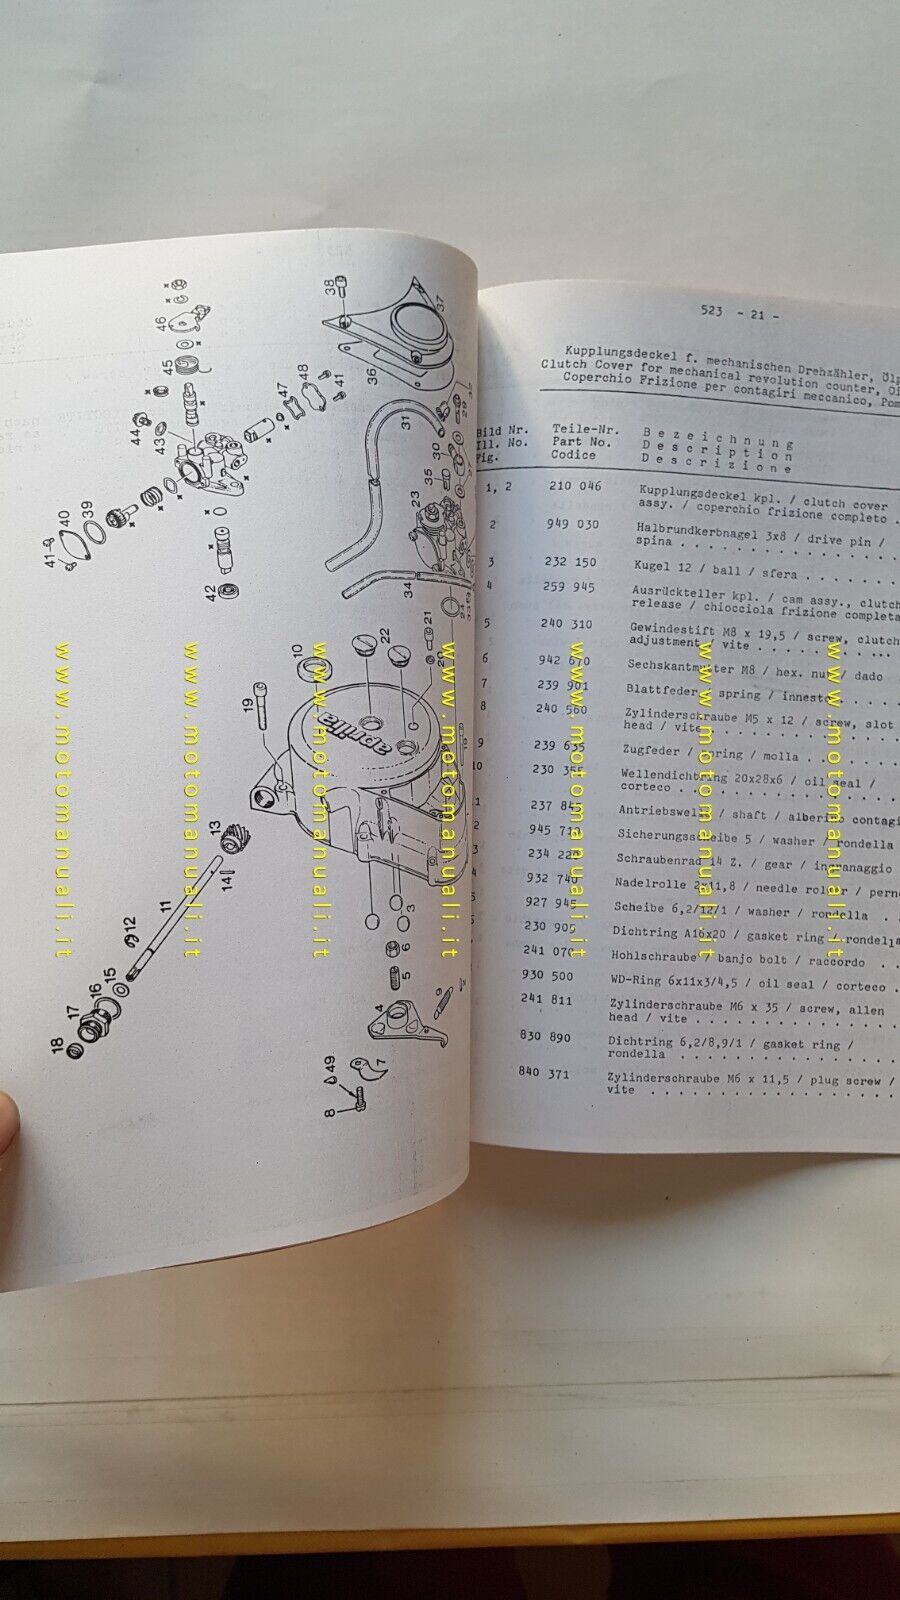 523 - 21 -
Kupplungsdeckel f. mechanischen Drehzähler,
Clutch Cover for mechanical revolution counter,
Coperchio Frizione per contagiri meccanico,
Bild Nr. Teile-Nr. B e z e i c h n u n g
Ill. No. Part No. D e s c r i p t i o n
Fig. Codice D e s c r i z i o n e
1, 2 210 046 Kupplungsdeckel kpl. / clutch cover
assy. / coperchio frizione completo .
2 949 030 Halbrundkerbnagel 3x8 / drive pin /
spina . . . . . . . . . . . . . . .
3 232 150 Kugel 12 / ball / sfera . . . . . . .
4 259 945 Ausrückteller kpl. / cam assy., clutch
release / chiocciola frizione completa
5 240 310 Gewindestift M8 x 19,5 / screw, clutch
adjustment / vite . . . . . . . ...
6 942 670 Sechskantmutter M8 / hex. nut / dado
7 239 901 Blattfeder / spring / innesto . . . .
8 240 560 Zylinderschraube M5 x 12 / screw, slot
head / vite . . . . . . . . . . . .
9 239 635 Zugfeder / spring / molla . . . . . .
10 230 355 Wellendichtring 20x28x6 / oil seal /
corteco . . . . . . . . . . . . . .
237 84 Antriebswelle / shaft / alberino
945 71 Sicherungsscheibe 5 / washer / rondella
234 22 Schraubenrad 14 Z. / gear / ingranaggio
932 740 Nadelrolle 2x11,8 / needle roller /
927 945 Scheibe 6,2/12/1 / washer / rondella . .
230 905 Dichtring A16x20 / gasket ring / rondella
241 070 Hohlschraube / banjo bolt / raccordo . .
930 500 WD-Ring 6x11x3/4,5 / oil seal / corteco .
241 811 Zylinderschraube M6 x 35 / screw, allen
head / vite . . . . . . . . . . . . . .
830 890 Dichtring 6,2/8,9/1 / gasket ring /
rondella . . . . . . . . . . . . . . .
840 371 Zylinderschraube M6 x 11,5 / plug screw /
vite . . . . . . . . . . . . . . . . .
aprilia
38
37
36
46
45
44
43
42
41
40
39
47
48
41
31
30
29
35
23
34
24
21
20
22
10
19
13
14
11
12
15
16
17
18
3
6
5
4
9
7
49
8
www.motomanuali.it
www.motomanuali.it
www.motomanuali.it
www.motomanuali.it
www.motomanuali.it
www.motomanuali.it
www.motomanuali.it